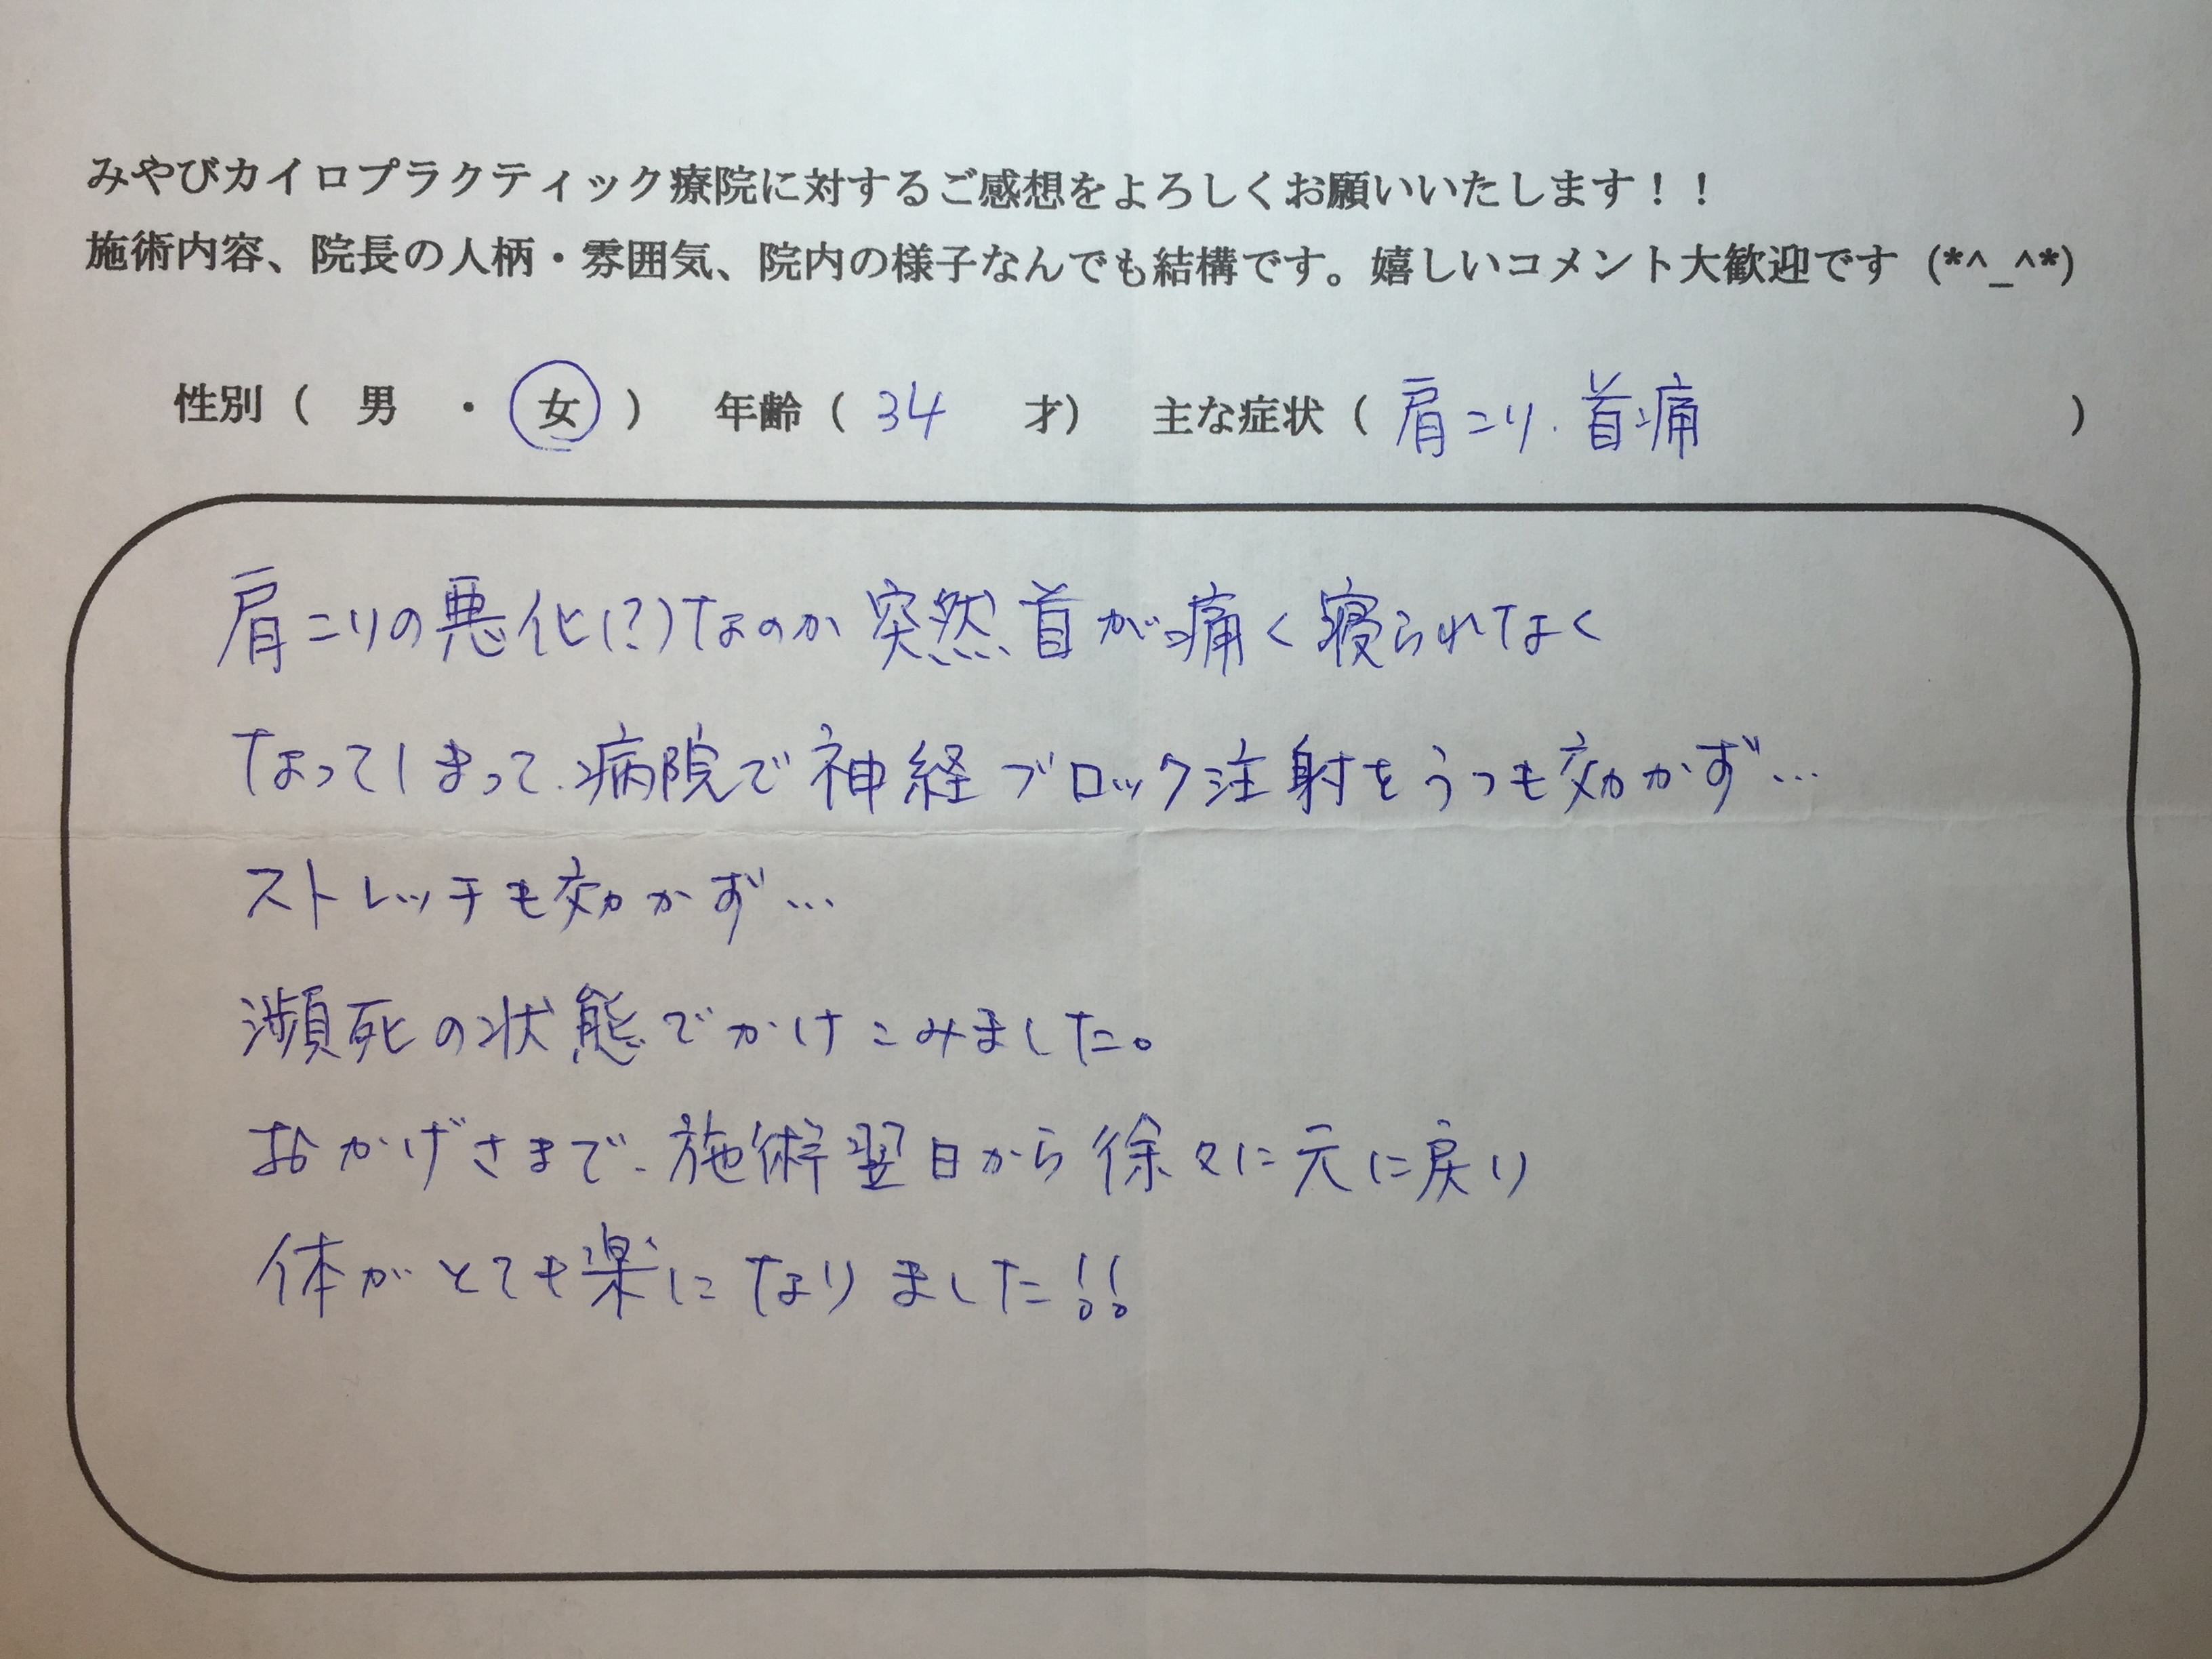 みやびカイロプラクティック療院に対するご感想をよろしくお願いいたします！！
施術内容、院長の人柄・雰囲気、院内の様子なんでも結構です。嬉しいコメント大歓迎です（*^_^*）
性別（　男　・　女　）　年齢（　34　才）　主な症状（　肩こり．首痛　）
肩こりの悪化(?)なのか突然首が痛く寝られなく
なってしまって、病院で神経ブロック注射をうつも効かず…
ストレッチも効かず…
瀕死の状態でかけこみました。
おかげさまで、施術翌日から徐々に元に戻り
体がとても楽になりました!!